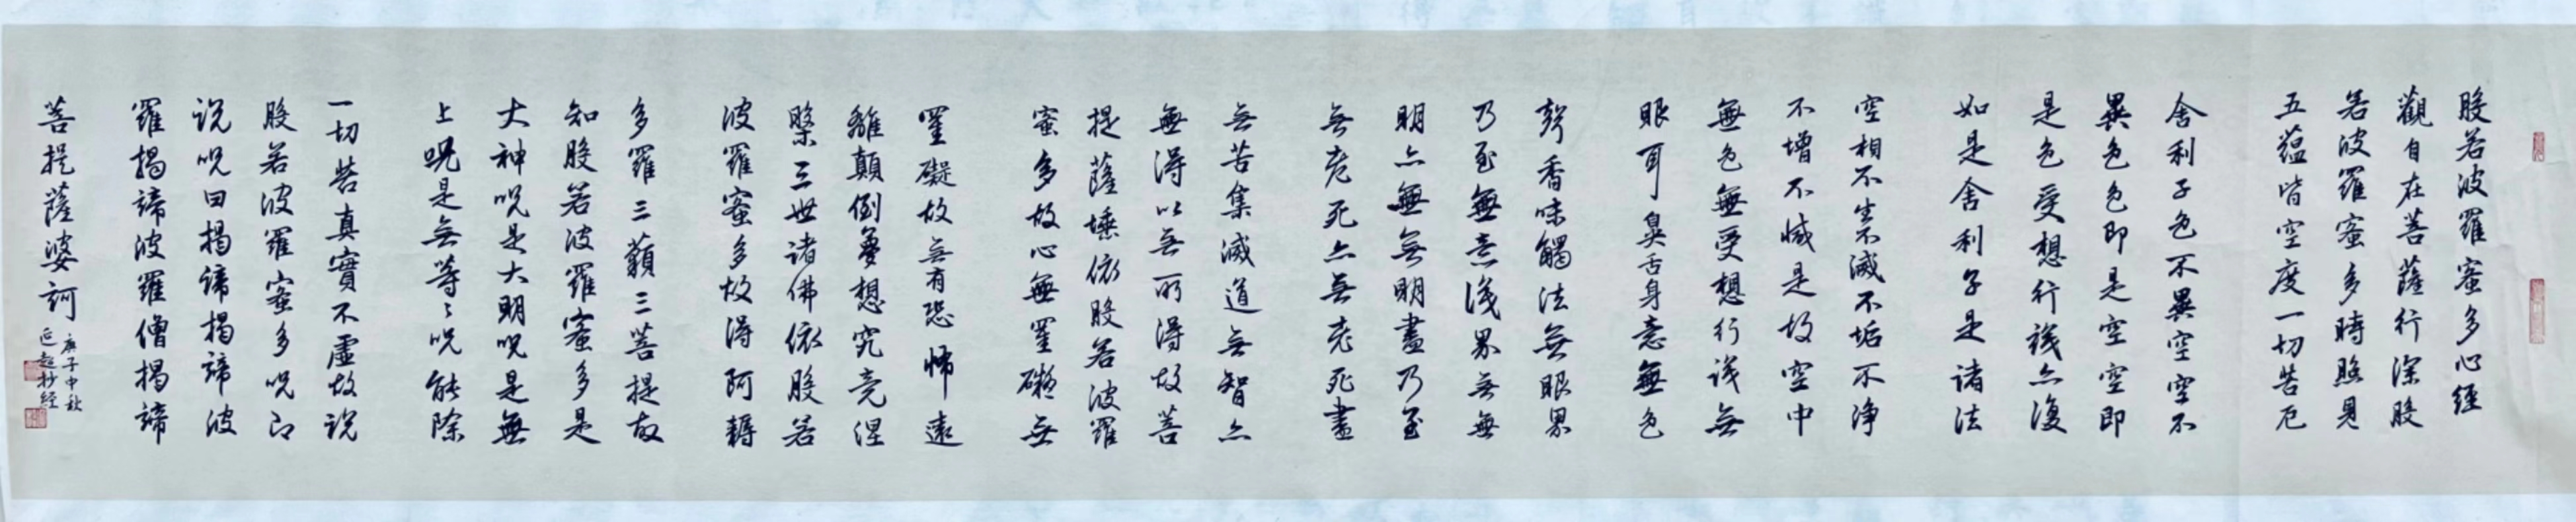 般若波羅蜜多心經
觀自在菩薩行深般
若波羅蜜多時照見
五蘊皆空度一切苦厄
舍利子色不異空空不
異色色即是空空即
是色受想行識亦復
如是舍利子是諸法
空相不生不滅不垢不淨
不增不減是故空中
無色無受想行識無
眼耳鼻舌身意無色
聲香味觸法無眼界
乃至無意識界無無
明亦無無明盡乃至
無老死亦無老死盡
無苦集滅道無智亦
無得以無所得故菩
提薩埵依般若波羅
蜜多故心無罣礙無
罣礙故無有恐怖遠
離顛倒夢想究竟涅
槃三世諸佛依般若
波羅蜜多故得阿耨
多羅三藐三菩提故
知般若波羅蜜多是
大神咒是大明咒是無
上咒是無等等咒能除
一切苦真實不虛故說
般若波羅蜜多咒即
說咒曰揭諦揭諦波
羅揭諦波羅僧揭諦
菩提薩婆訶
庚子中秋
延超抄經